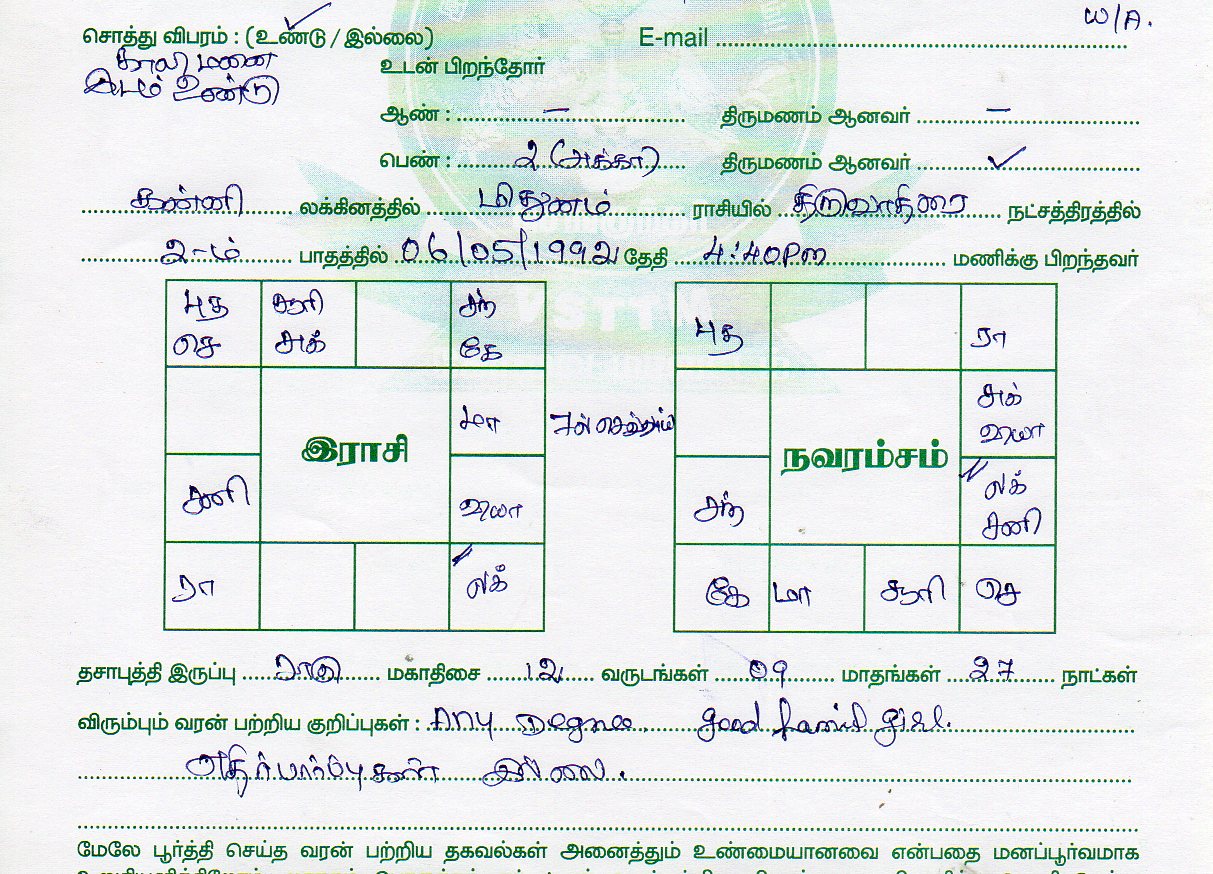 W/A.
சொத்து விபரம் : (உண்டு / இல்லை) E-mail
காலி மனை
இடம் உண்டு
உடன் பிறந்தோர்
ஆண் : – திருமணம் ஆனவர் –
பெண் : 2 (அக்கா) திருமணம் ஆனவர் ✓
கன்னி லக்கினத்தில் மிதுனம் ராசியில் திருவாதிரை நட்சத்திரத்தில்
2-ம் பாதத்தில் 06/05/1992 தேதி 4:40PM மணிக்கு பிறந்தவர்
புத சூரி சந் புத ரா
செ சுக் கே
மா சுக்
வியா
இராசி நவரம்சம்
சனி வியா சந் லக்
சனி
ரா லக் கே மா சூரி செ
தசாபுத்தி இருப்பு ராகு மகாதிசை 12 வருடங்கள் 09 மாதங்கள் 27 நாட்கள்
விரும்பும் வரன் பற்றிய குறிப்புகள் : Any Degree. good family girl.
எதிர்பார்ப்புகள் இல்லை.
மேலே பூர்த்தி செய்த வரன் பற்றிய தகவல்கள் அனைத்தும் உண்மையானவை என்பதை மனப்பூர்வமாக